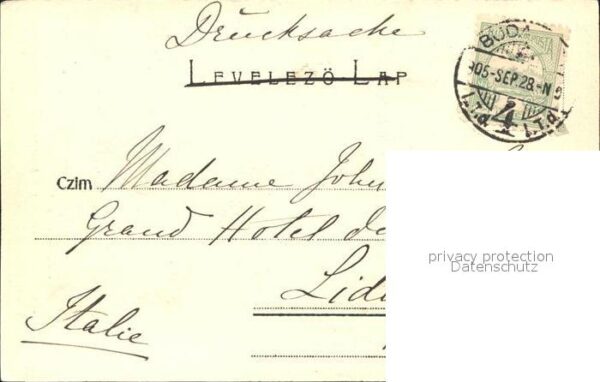 Drucksache
LEVELEZŐ LAP
BUDA
905-SEP.28.-N
4
I.T.d. I.T.d.
Czim Madame John
Grand Hotel de
Lid
Italie
privacy protection
Datenschutz